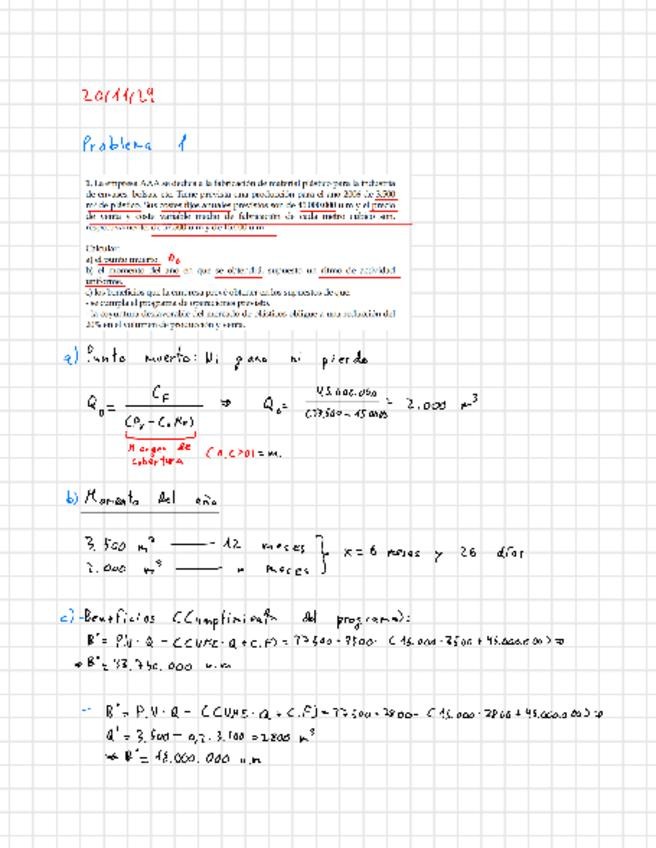 20/11/24
Problema 1
1. La empresa AAA se dedica a la fabricación de material plástico para la industria
de envases, bolsas, etc. Tiene prevista una producción para el año 2006 de 3.500
m³ de plástico. Sus costes fijos anuales previstos son de 45.000.000 u.m y el precio
de venta y coste variable medio de fabricación de cada metro cúbico son,
respectivamente, de u.m y de u.m
Calcular:
a) el punto muerto. Q₀
b) el momento del año en que se obtendrá, supuesto un ritmo de actividad
uniforme.
c) los beneficios que la empresa prevé obtener en los supuestos de que:
- se cumpla el programa de operaciones previsto.
- la coyuntura desfavorable del mercado de plásticos obligue a una reducción del
20% en el volumen de producción y venta.
a) Punto muerto: Ni gano ni pierdo
Q₀ = C_F / (P_v - C.Me) ⇒ Q₀ = 45.000.000 / (37.500 - 15.000) = 2.000 m³
Margen de
cobertura
b) Momento del año
3.500 m³ — 12 meses
2.000 m³ — x meses } x = 6 meses y 26 días
c) - Beneficios (Cumplimiento del programa):
B' = P.V · Q - (CVME · Q + C.F) = 37500 · 3500 - (15.000 · 3500 + 45.000.000) ⇒
⇒ B' = 33.750.000 u.m
- B' = P.V · Q - (CVME · Q + C.F) = 37500 · 2800 - (15.000 · 2800 + 45.000.000) ⇒
Q' = 3.500 - 0,2 · 3.500 = 2800 m³
⇒ B' = 18.000.000 u.m